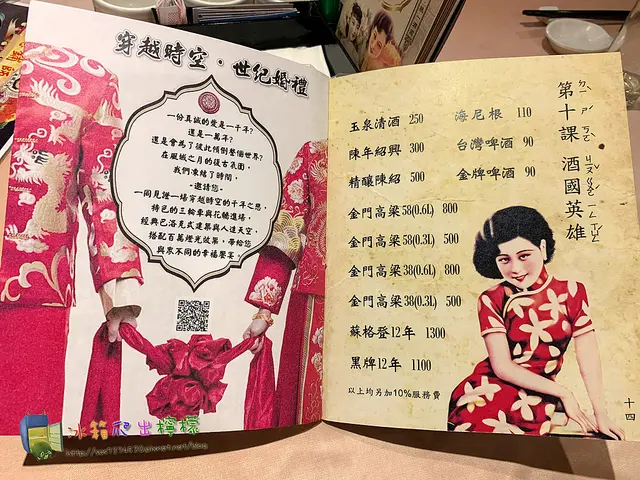 穿越時空·世紀婚禮
一份真誠的愛是一千年?
還是一萬年?
還是會為了彼此傾倒整個世界?
在風城之月的復古氛圍,
我們凍結了時間,
-邀請您-
一同見證一場穿越時空的千年之戀,
特色的三輪車與花轎進場,
經典巴洛克式建築與人造天空,
搭配百萬燈光效果,帶給您
與眾不同的幸福饗宴。
第十課 酒國英雄
玉泉清酒 250
海尼根 110
陳年紹興 300
台灣啤酒 90
精釀陳紹 500
金牌啤酒 90
金門高梁58(0.6L) 800
金門高梁58(0.3L) 500
金門高梁38(0.6L) 800
金門高梁38(0.3L) 500
蘇格登12年 1300
黑牌12年 1100
以上均另加10%服務費
十四
冰箱爬出檸檬